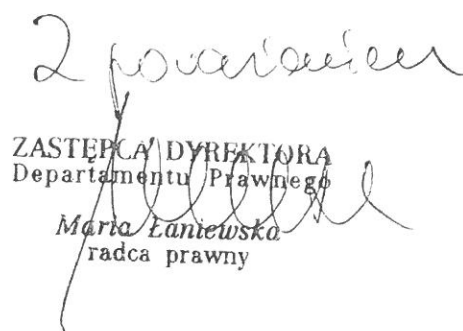 Z poważaniem
ZASTĘPCA DYREKTORA
Departamentu Prawnego
Maria Łaniewska
radca prawny